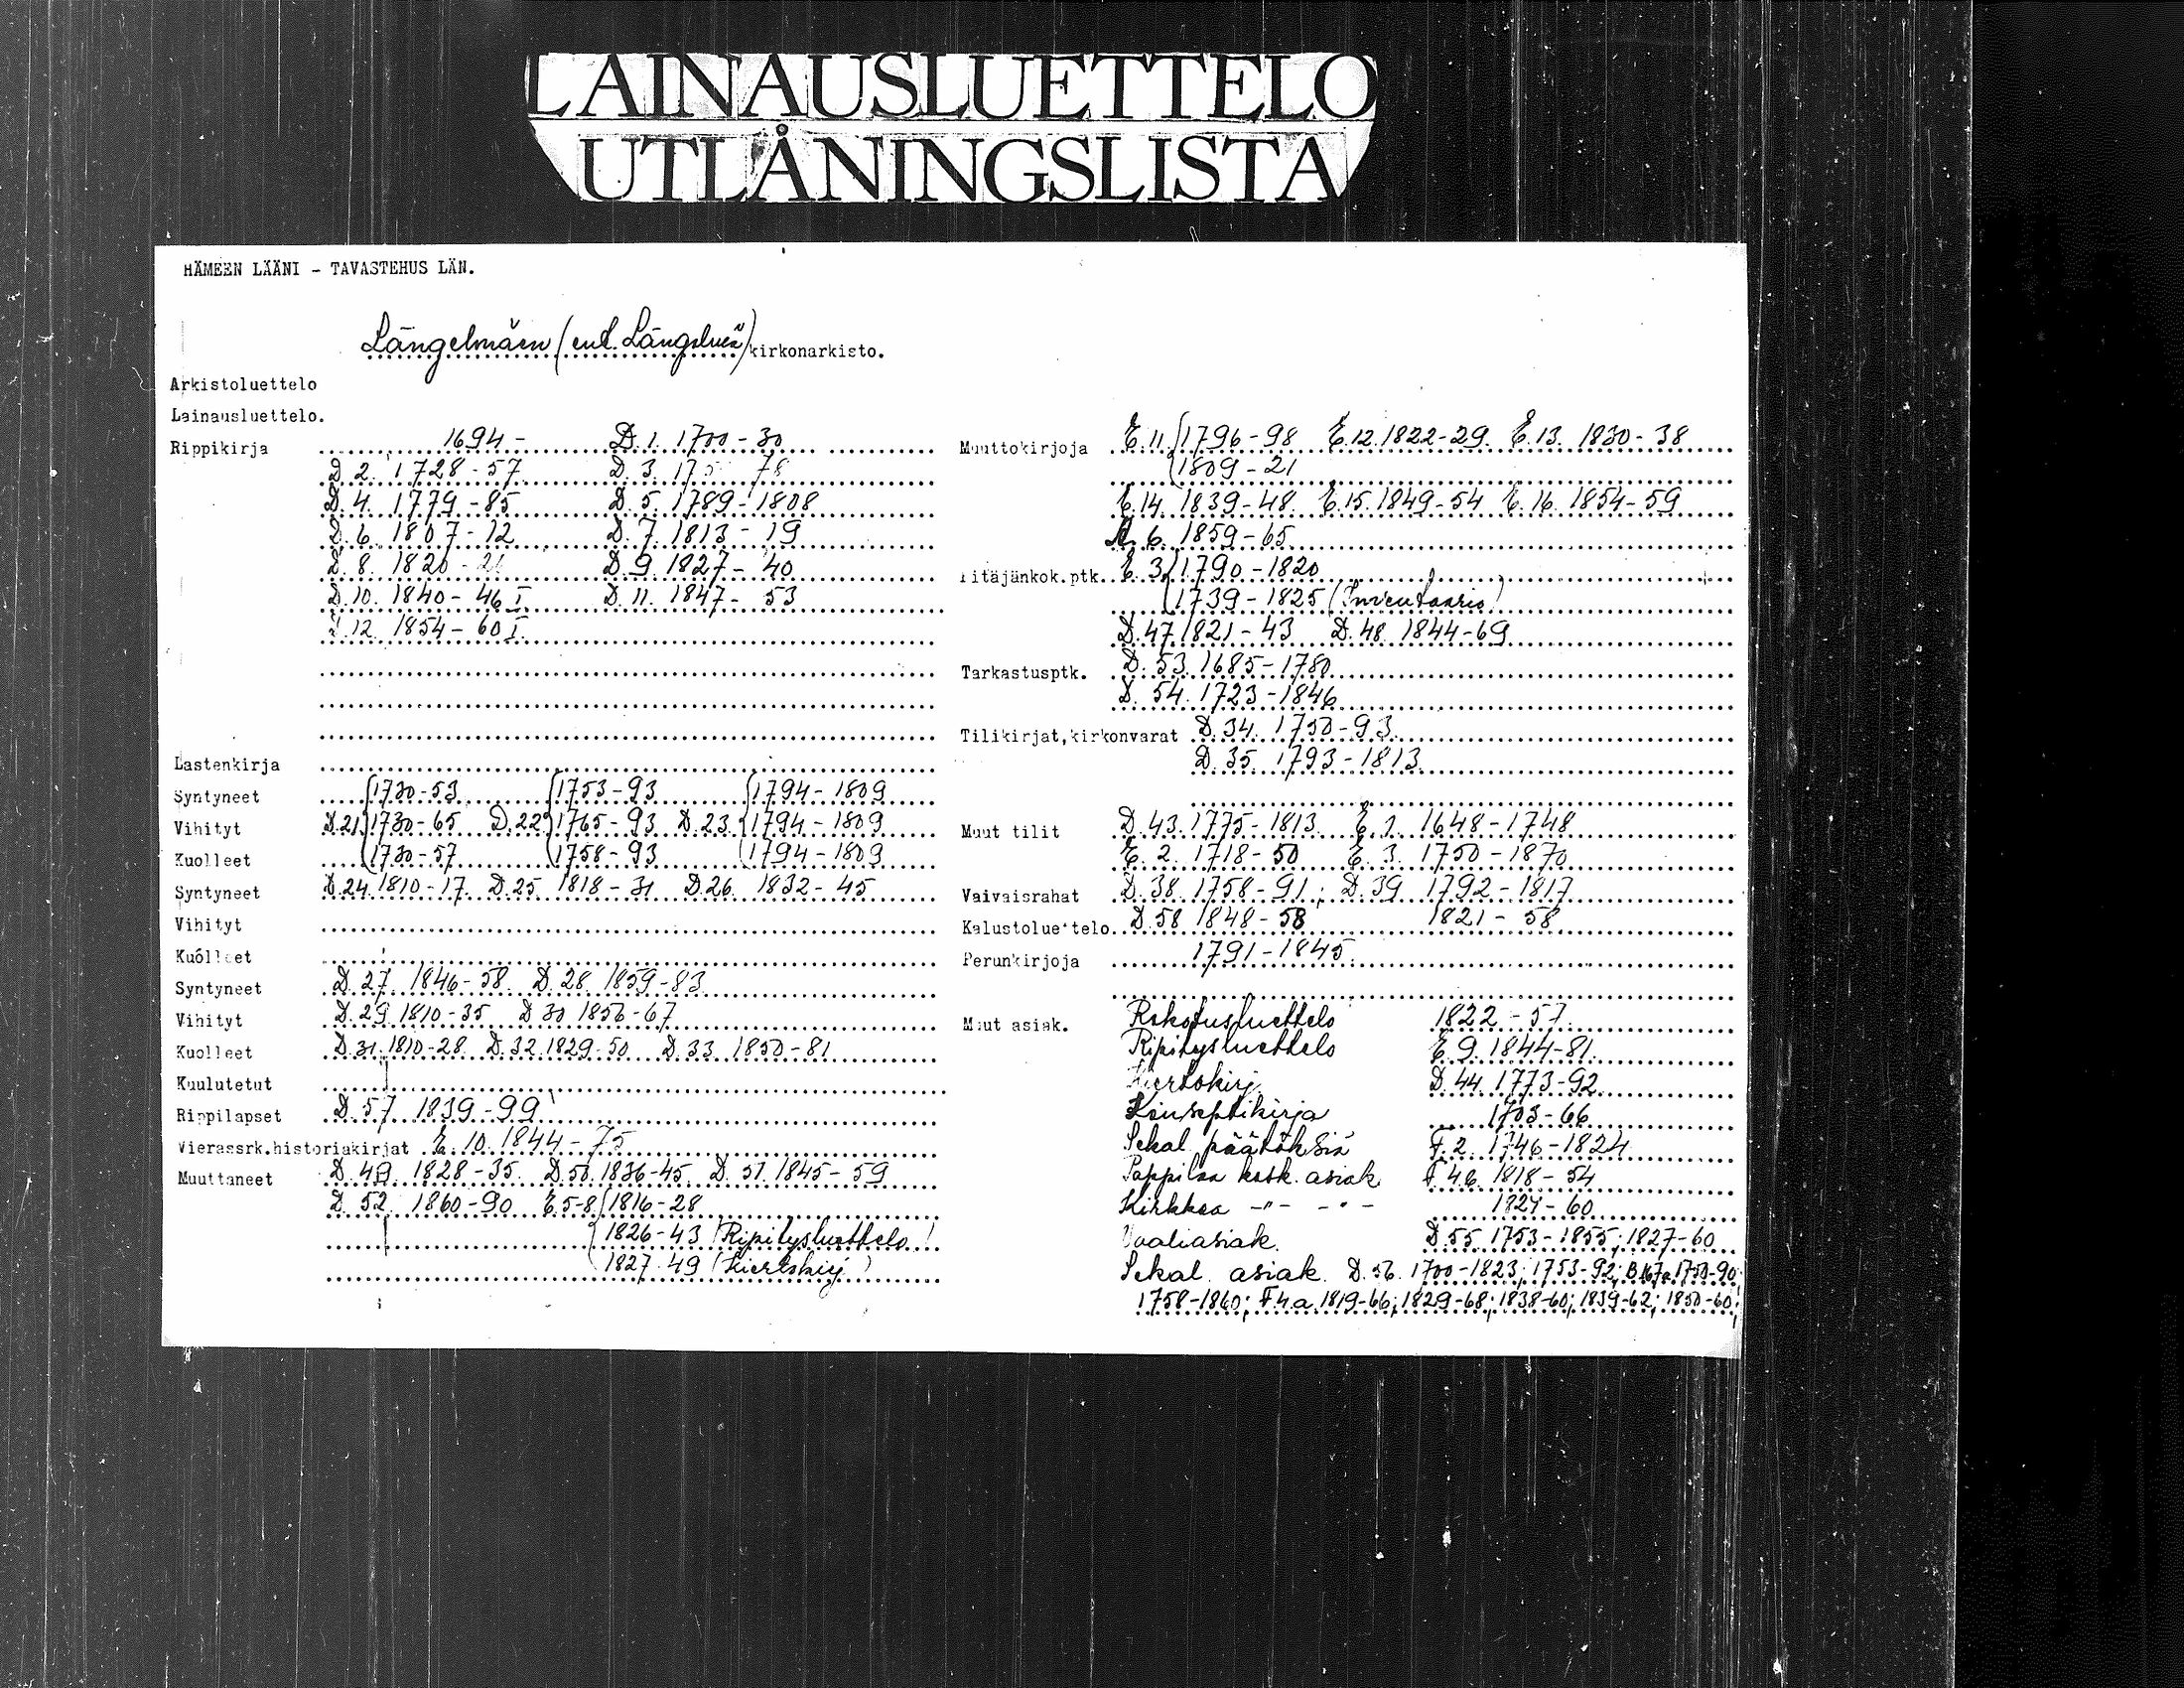 LAINAUSLUETTELO
UTLÅNINGSLISTA
HÄMEEN LÄÄNI - TAVASTEHUS LÄN.
Längelmäen (ent. Längelmä) kirkonarkisto.
Arkistoluettelo
Lainausluettelo.
Rippikirja 1694- D.1. 1700-30
D.2. 1728-57 D.3. 78
D.4. 1779-85 D.5. 1789-1808
D.6. 1807-12 D.7. 1813-19
D.8. 1820- D.9. 1827-40
D.10. 1840-46 I D.11. 1847-53
D.12. 1854-60 I
Lastenkirja
Syntyneet 1730-53 1753-93 1794-1809
Vihityt D.21 1730-65 D.22 1765-93 D.23 1794-1809
Kuolleet 1730-57 1758-93 1794-1809
Syntyneet D.24. 1810-17 D.25 1818-31 D.26. 1832-45
Vihityt
Kuolleet
Syntyneet D.27. 1846-58 D.28. 1859-83
Vihityt D.29 1810-35 D 30 1856-67
Kuolleet D.31. 1810-28 D.32. 1829-50 D.33. 1850-81
Kuulutetut
Rippilapset D.57 1839-99
Vierassrk.historiakirjat E.10. 1844-75
Muuttaneet D.49. 1828-35 D.50. 1836-45 D.51. 1845-59
D.52. 1860-90 E.5-8 1816-28
1826-43 (Ripitysluettelo)
1827-49 (Kiertokirj.)
Muuttokirjoja E.11. 1796-98 E.12. 1822-29. E.13. 1830-38
1809-21
E.14. 1839-48. E.15. 1849-54 E.16. 1854-59
A.6. 1859-65
Pitäjänkok.ptk. E.3. 1790-1820
1739-1825 (Inventaario)
D.47. 1821-43 D.48. 1844-69
Tarkastusptk. D.53. 1685-1780
D.54. 1723-1846
Tilikirjat,kirkonvarat D.34. 1750-93
D.35. 1793-1813
Muut tilit D.43. 1775-1813 E.1. 1648-1748
E.2. 1718-50 E.3. 1750-1870
Vaivaisrahat D.38. 1758-91; D.39 1792-1817
Kalustoluettelo. D.58 1848-58 1821-58
Perunkirjoja 1791-1845
Muut asiak. Rokotusluettelo 1822-57
Ripitysluettelo E.9. 1844-81
Kiertokirj. D.44. 1773-92
Konseptikirja 1703-66
Sekal. päätöksiä F.2. 1746-1824
Pappilaa kosk. asiak. F.4.b. 1818-54
Kirkkoa -"- -"- 1827-60
Vaaliasiak. D.55. 1753-1855; 1827-60
Sekal. asiak. D.56. 1700-1823; 1753-92; 1750-90;
1758-1860; F.4.a. 1819-66; 1829-68; 1838-60; 1839-62; 1850-60;